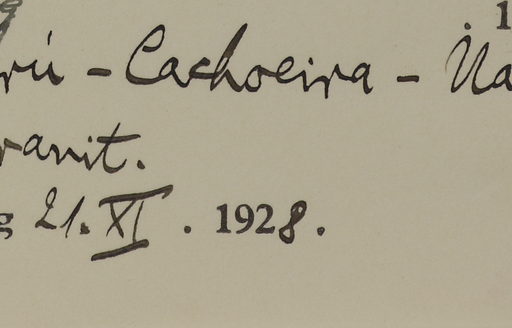 rú - Cachoeira - Na
ranit.
g 21. XI. 1928.